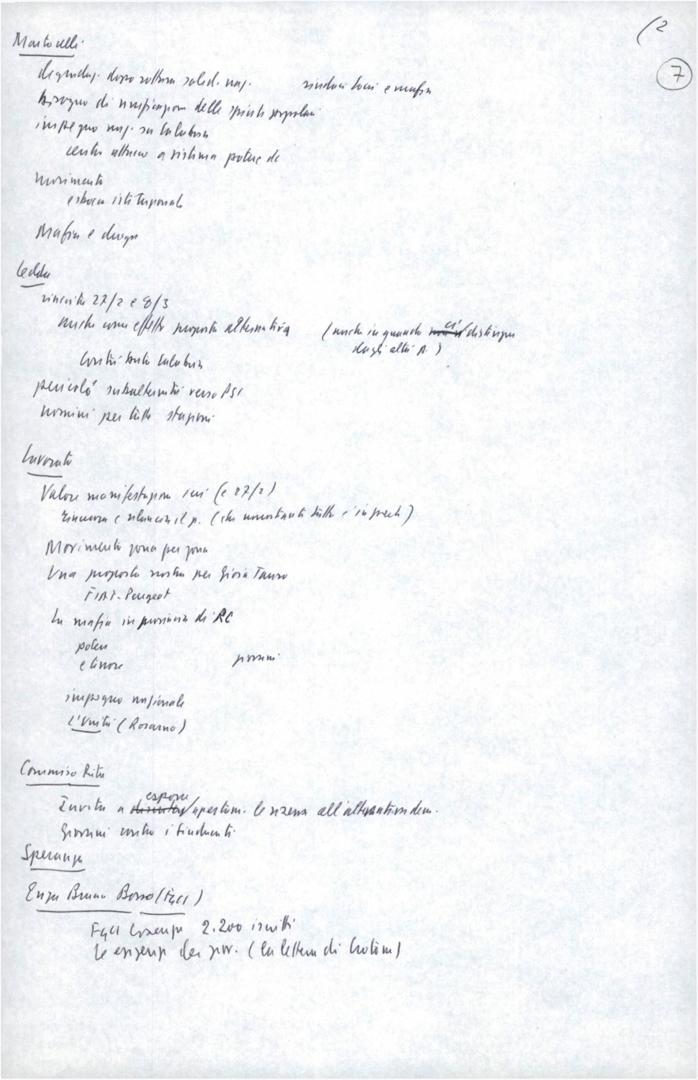 (2
7
Martorelli
degradaz. dopo rottura solid. naz. sindaci loni e mafia
bisogno di unificazione delle spinte popolari
impegno naz. su Calabria
centro attacco a sistema potere dc
Movimento
e sbocco istituzionale
Mafia e droga
Ledda
riuscita 27/2 e 8/3
anche come effetto proposta alternativa (anche in quanto ci distingue
dagli altri p.)
Contributo Calabria
pericolo subalternità verso PSI
uomini per tutte stagioni
Lavorato
Valore manifestazioni ieri (e 27/2)
rincuora e rilancia il p. (che nonostante tutto è in piedi)
Movimento zona per zona
Una proposta nostra per Gioia Tauro
FIAT-Peugeot
La mafia in provincia di RC
potere
e timore giovani
impegno nazionale
L'Unità (Rosarno)
Commisso Rita
Invita a esporre apertam. le riserve all'alternativa dem.
Giovani contro i sindacati
Speranza
Enza Bruno Bosso (FGCI)
FGCI Cosenza 2.200 iscritti
le esigenze dei giov. (la lettera di Crotone)